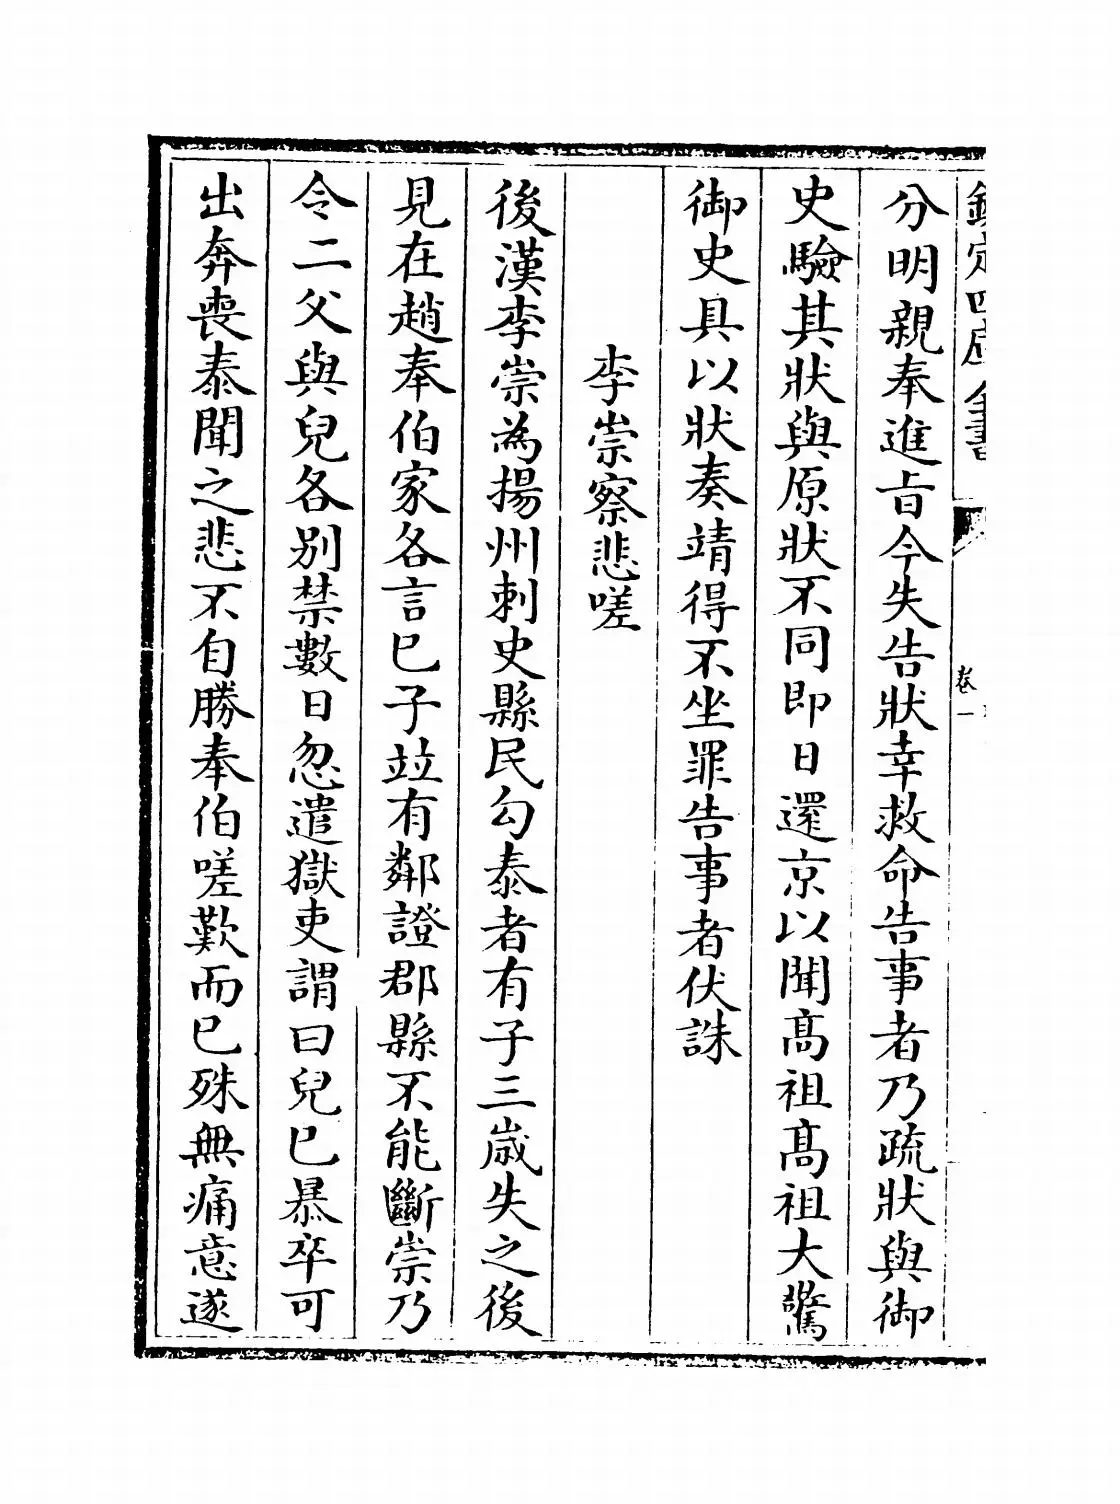 欽定四庫全書
卷一
分明親奉進旨今失告狀幸救命告事者乃疏狀與御
史驗其狀與原狀不同即日還京以聞髙祖髙祖大驚
御史具以狀奏靖得不坐罪告事者伏誅
李崇察悲嗟
後漢李崇為揚州刺史縣民勾泰者有子三歲失之後
見在趙奉伯家各言已子竝有鄰證郡縣不能斷崇乃
令二父與兒各别禁數日忽遣獄吏謂曰兒已暴卒可
出奔喪泰聞之悲不自勝奉伯嗟歎而已殊無痛意遂